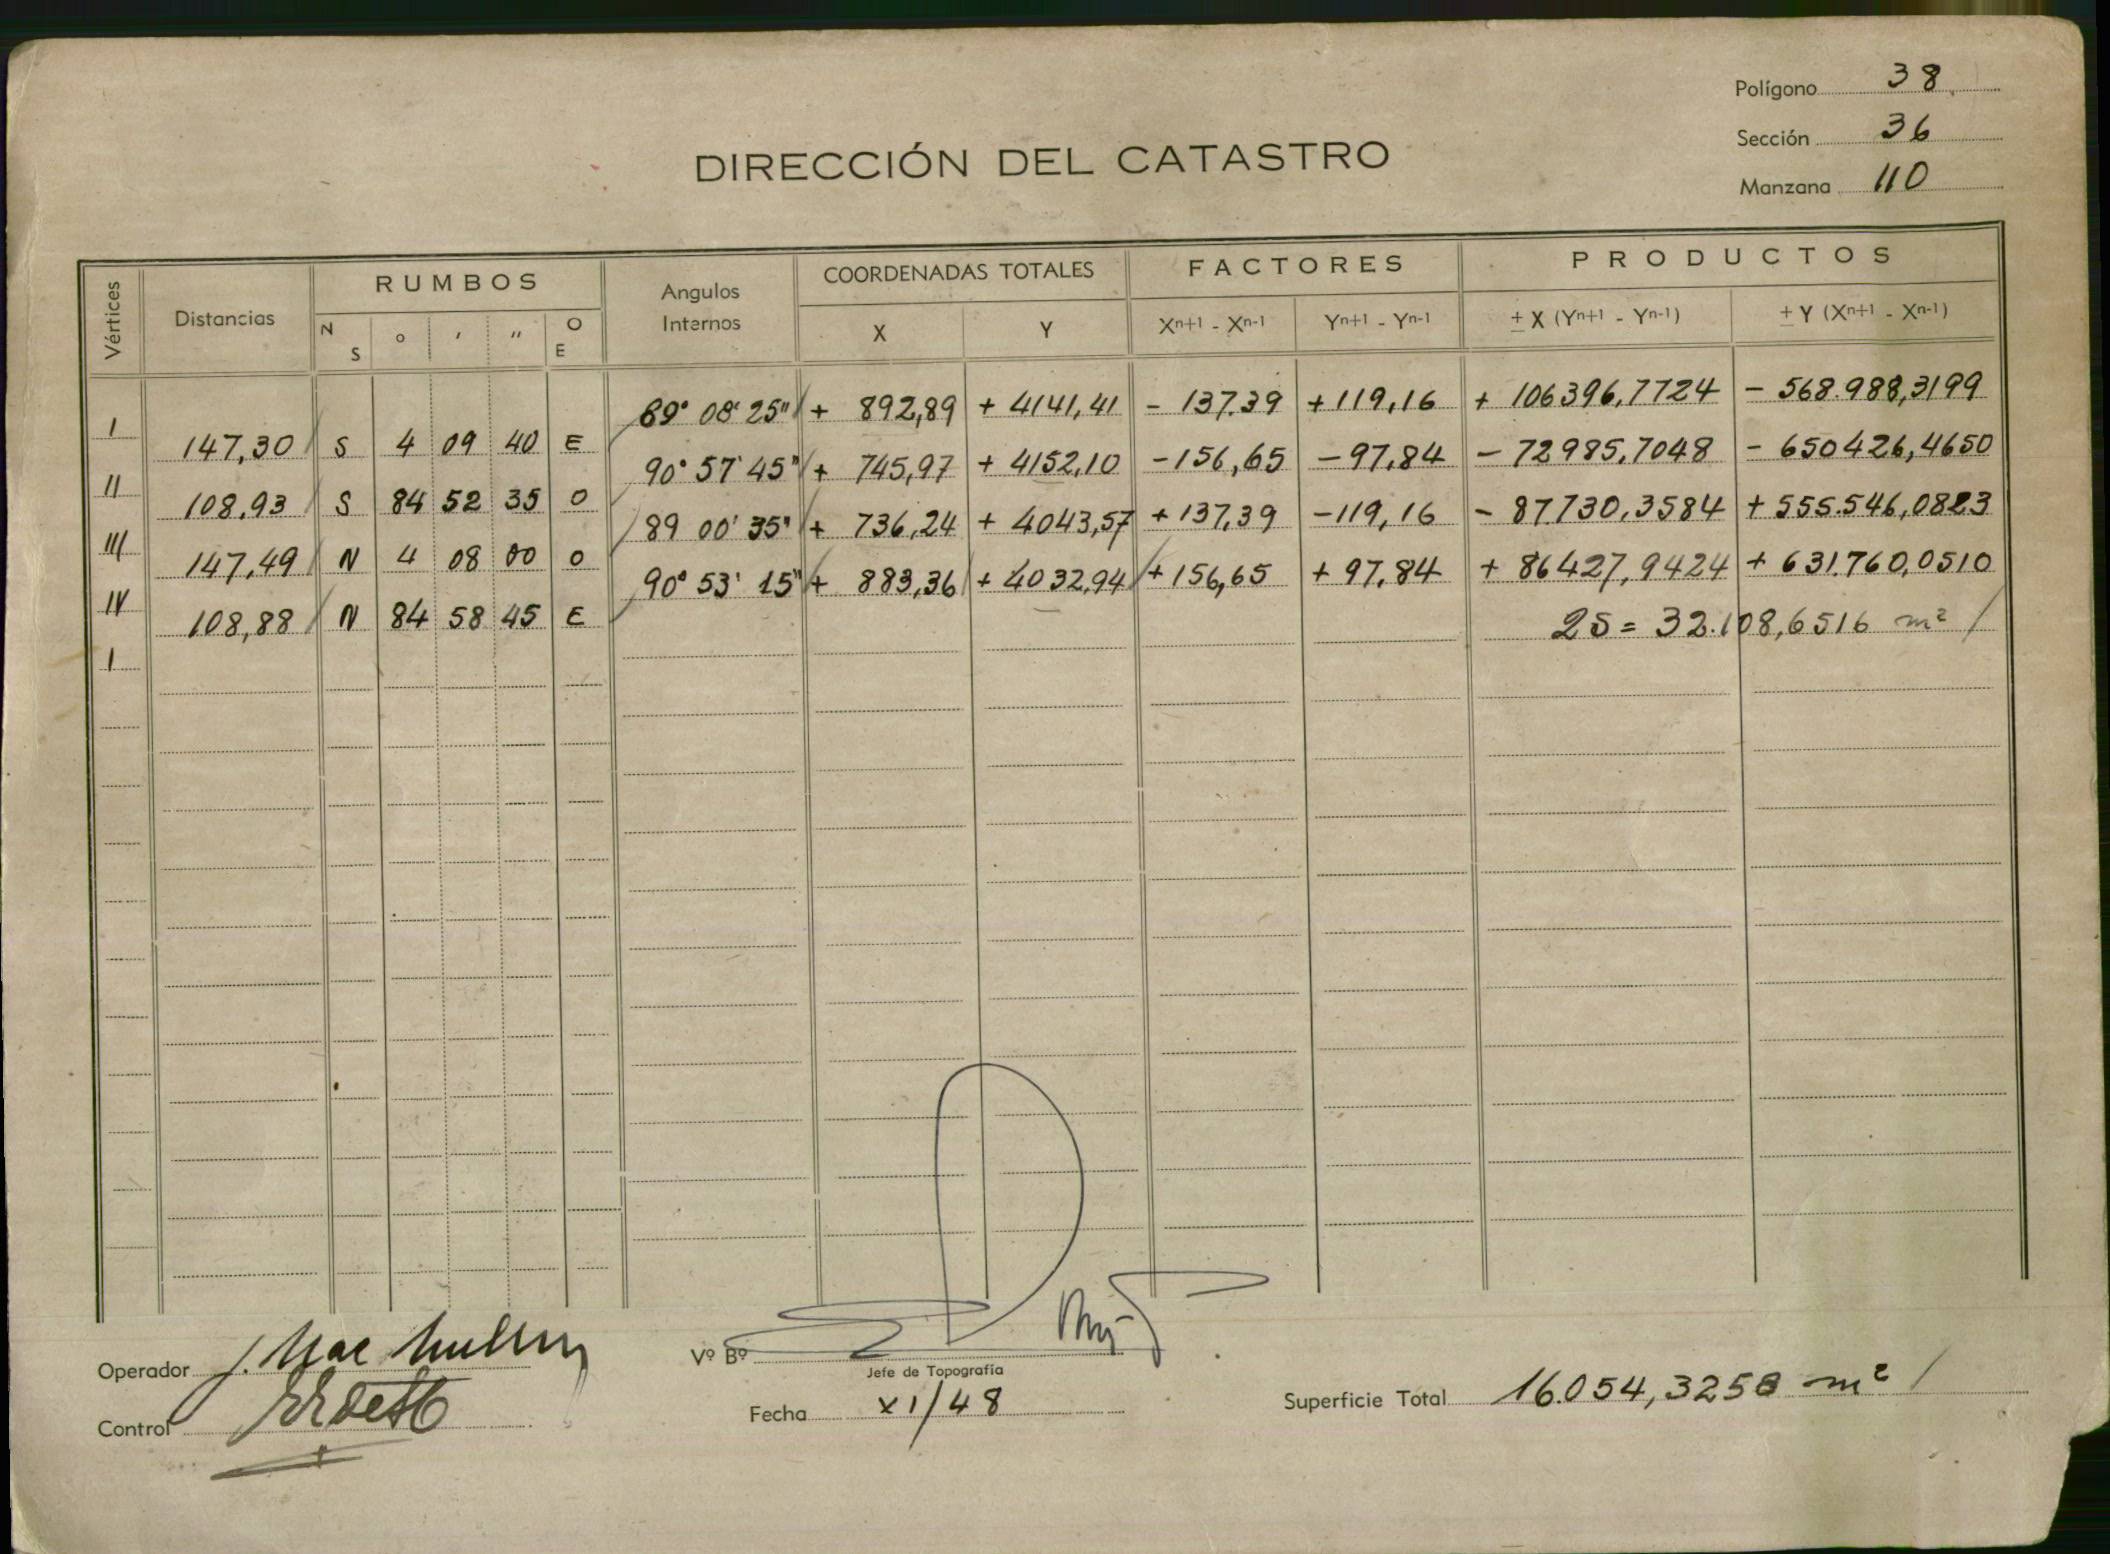 Polígono 38
Sección 36
Manzana 110
DIRECCIÓN DEL CATASTRO
Vértices Distancias RUMBOS Angulos Internos COORDENADAS TOTALES FACTORES PRODUCTOS
N S ° ' " O E X Y Xn+1 - Xn-1 Yn+1 - Yn-1 ± X (Yn+1 - Yn-1) ± Y (Xn+1 - Xn-1)
I 89° 08' 25" + 892,89 + 4141,41 - 137,39 + 119,16 + 106396,7724 - 568.988,3199
147,30 S 4 09 40 E
II 90° 57' 45" + 745,97 + 4152,10 - 156,65 - 97,84 - 72985,7048 - 650426,4650
108,93 S 84 52 35 O
III 89 00' 35" + 736,24 + 4043,57 + 137,39 - 119,16 - 87730,3584 + 555.546,0823
147,49 N 4 08 00 O
IV 90° 53' 15" + 883,36 + 4032,94 + 156,65 + 97,84 + 86427,9424 + 631.760,0510
108,88 N 84 58 45 E
2S = 32.108,6516 m²
I
Operador J. Mac
Vº Bº
Jefe de Topografía
Control
Fecha XI/48
Superficie Total 16.054,3258 m²